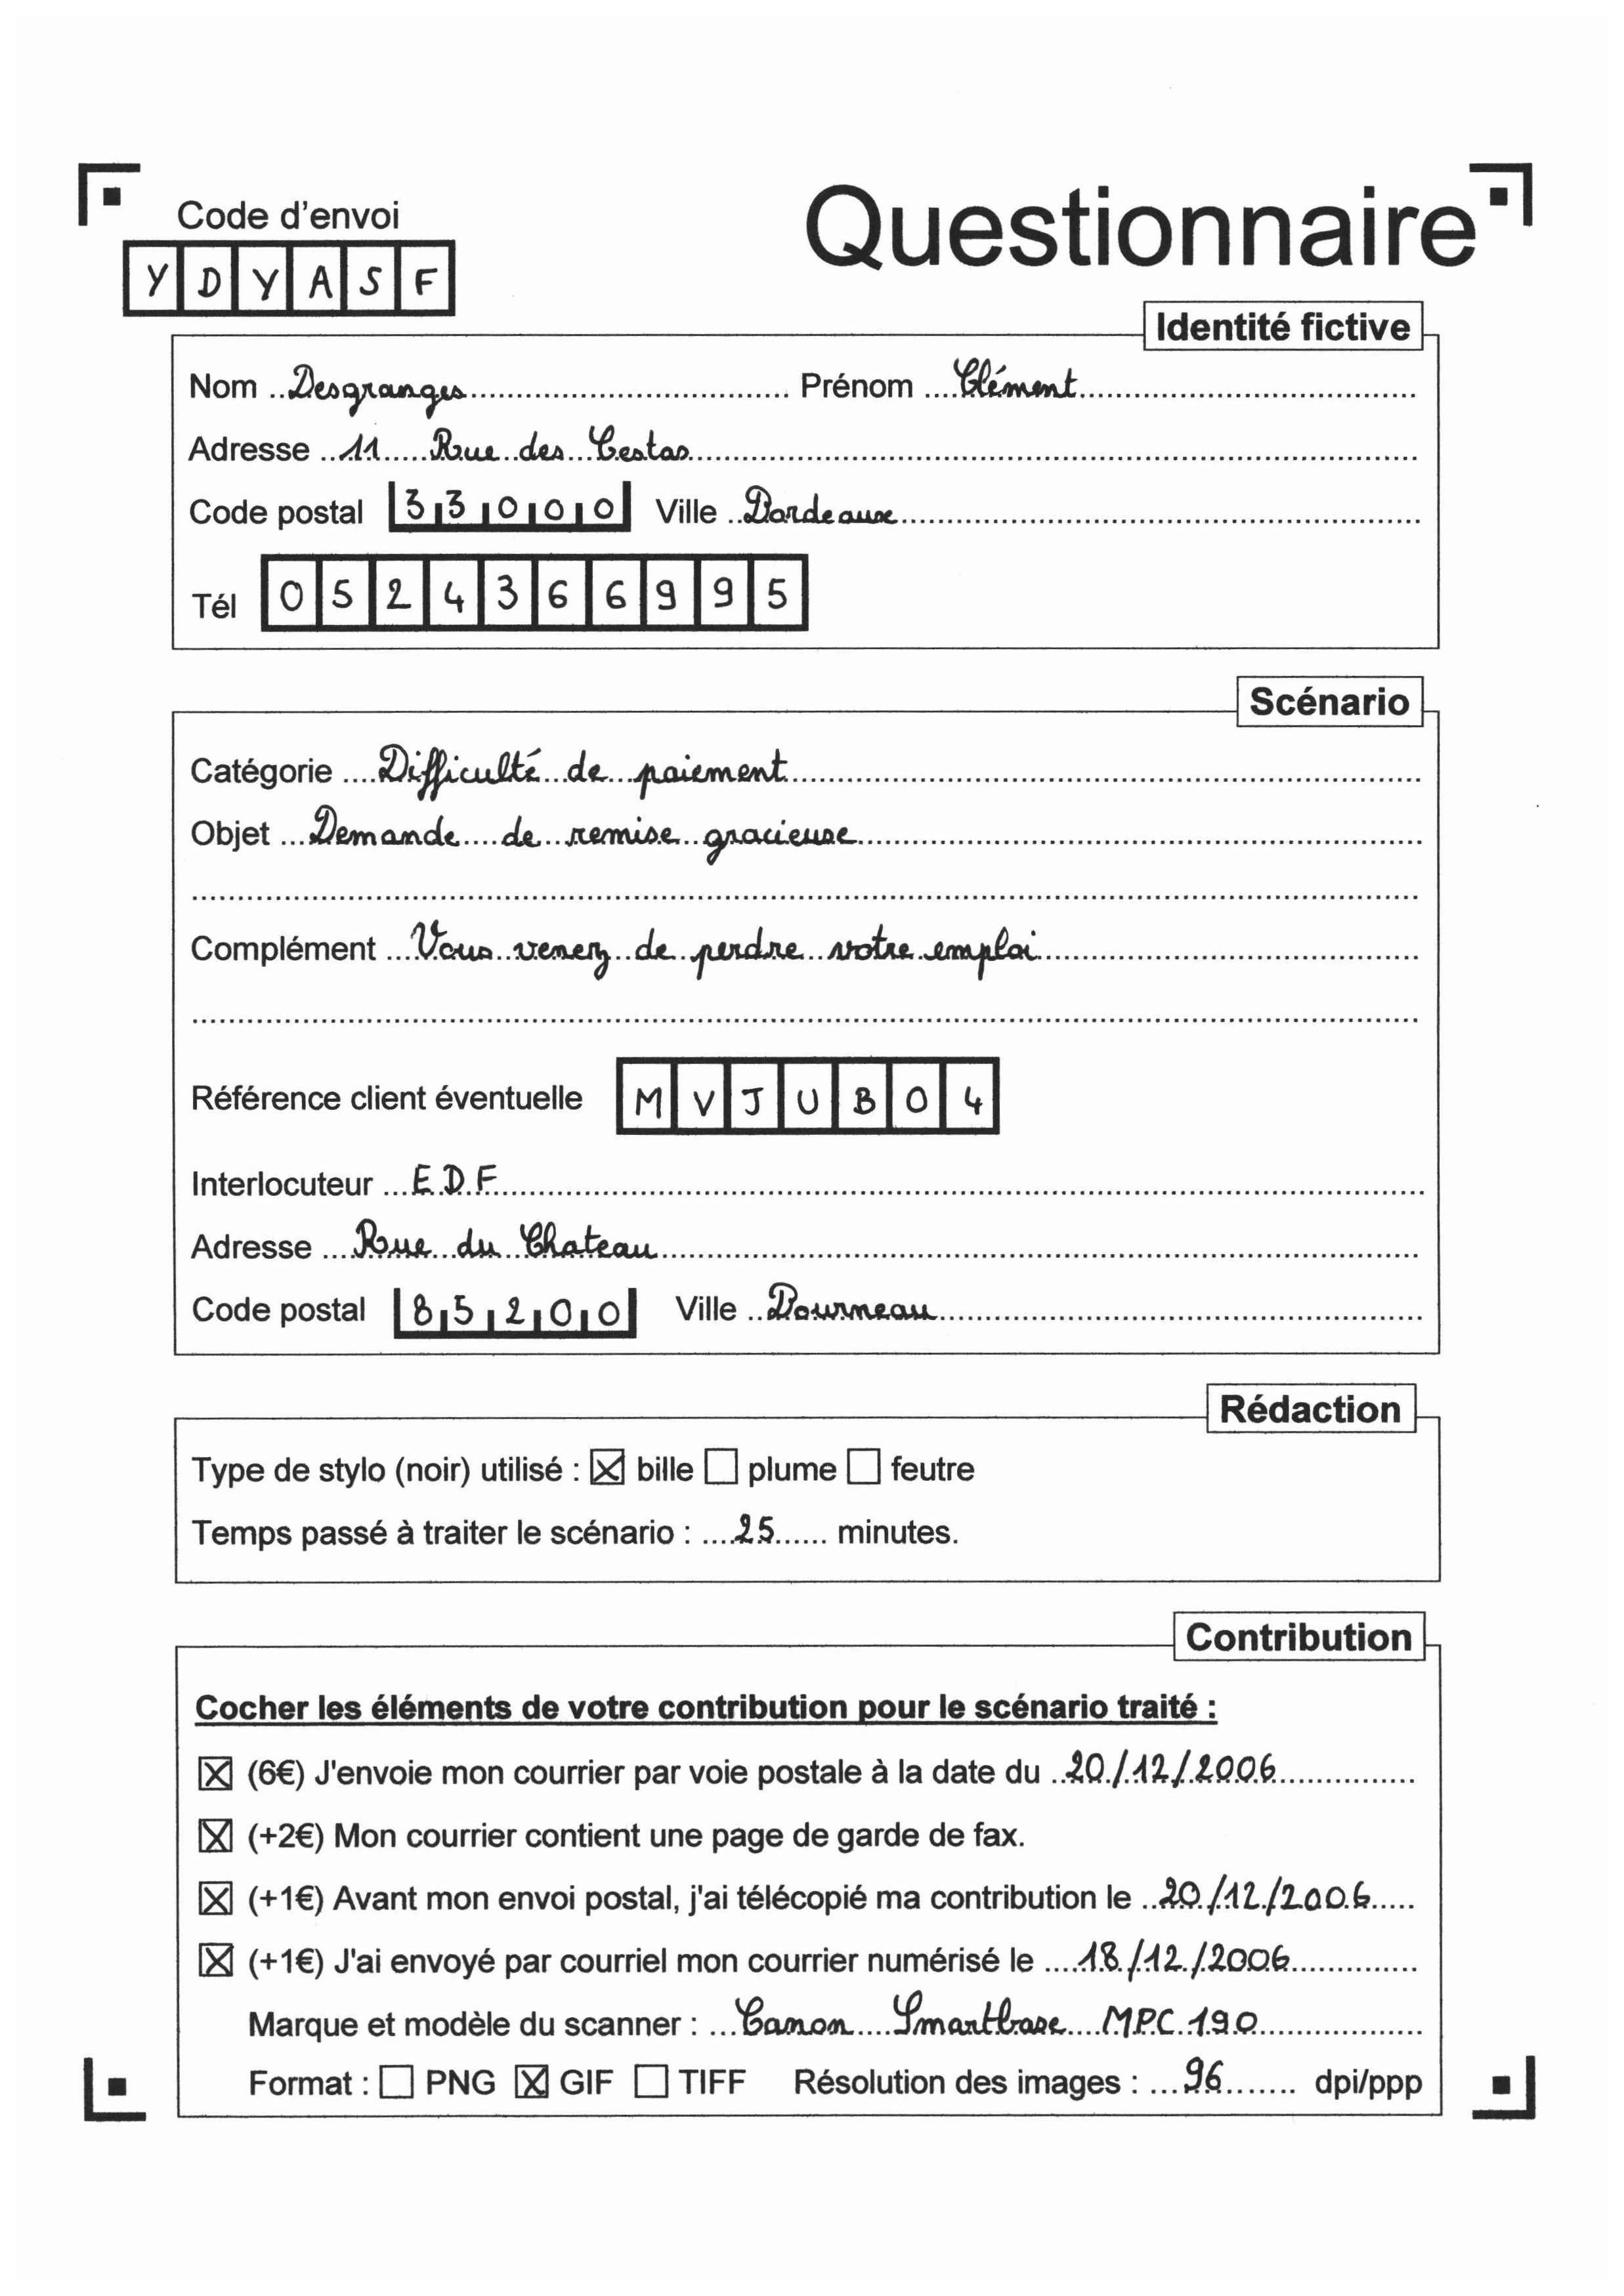 Code d'envoi
Questionnaire
Y D Y A S F
Identité fictive
Nom Desgranges Prénom Clément
Adresse 11 Rue des Cestas
Code postal 33000 Ville Bordeaux
Tél 0524366995
Scénario
Catégorie Difficulté de paiement
Objet Demande de remise gracieuse
Complément Vous venez de perdre votre emploi
Référence client éventuelle M V J U B 0 4
Interlocuteur EDF
Adresse Rue du Chateau
Code postal 85200 Ville Bourneau
Rédaction
Type de stylo (noir) utilisé : ☒ bille ☐ plume ☐ feutre
Temps passé à traiter le scénario : 25 minutes.
Contribution
Cocher les éléments de votre contribution pour le scénario traité :
☒ (6€) J'envoie mon courrier par voie postale à la date du 20/12/2006
☒ (+2€) Mon courrier contient une page de garde de fax.
☒ (+1€) Avant mon envoi postal, j'ai télécopié ma contribution le 20/12/2006
☒ (+1€) J'ai envoyé par courriel mon courrier numérisé le 18/12/2006
Marque et modèle du scanner : Canon Smartbase MPC 190
Format : ☐ PNG ☒ GIF ☐ TIFF Résolution des images : 96 dpi/ppp